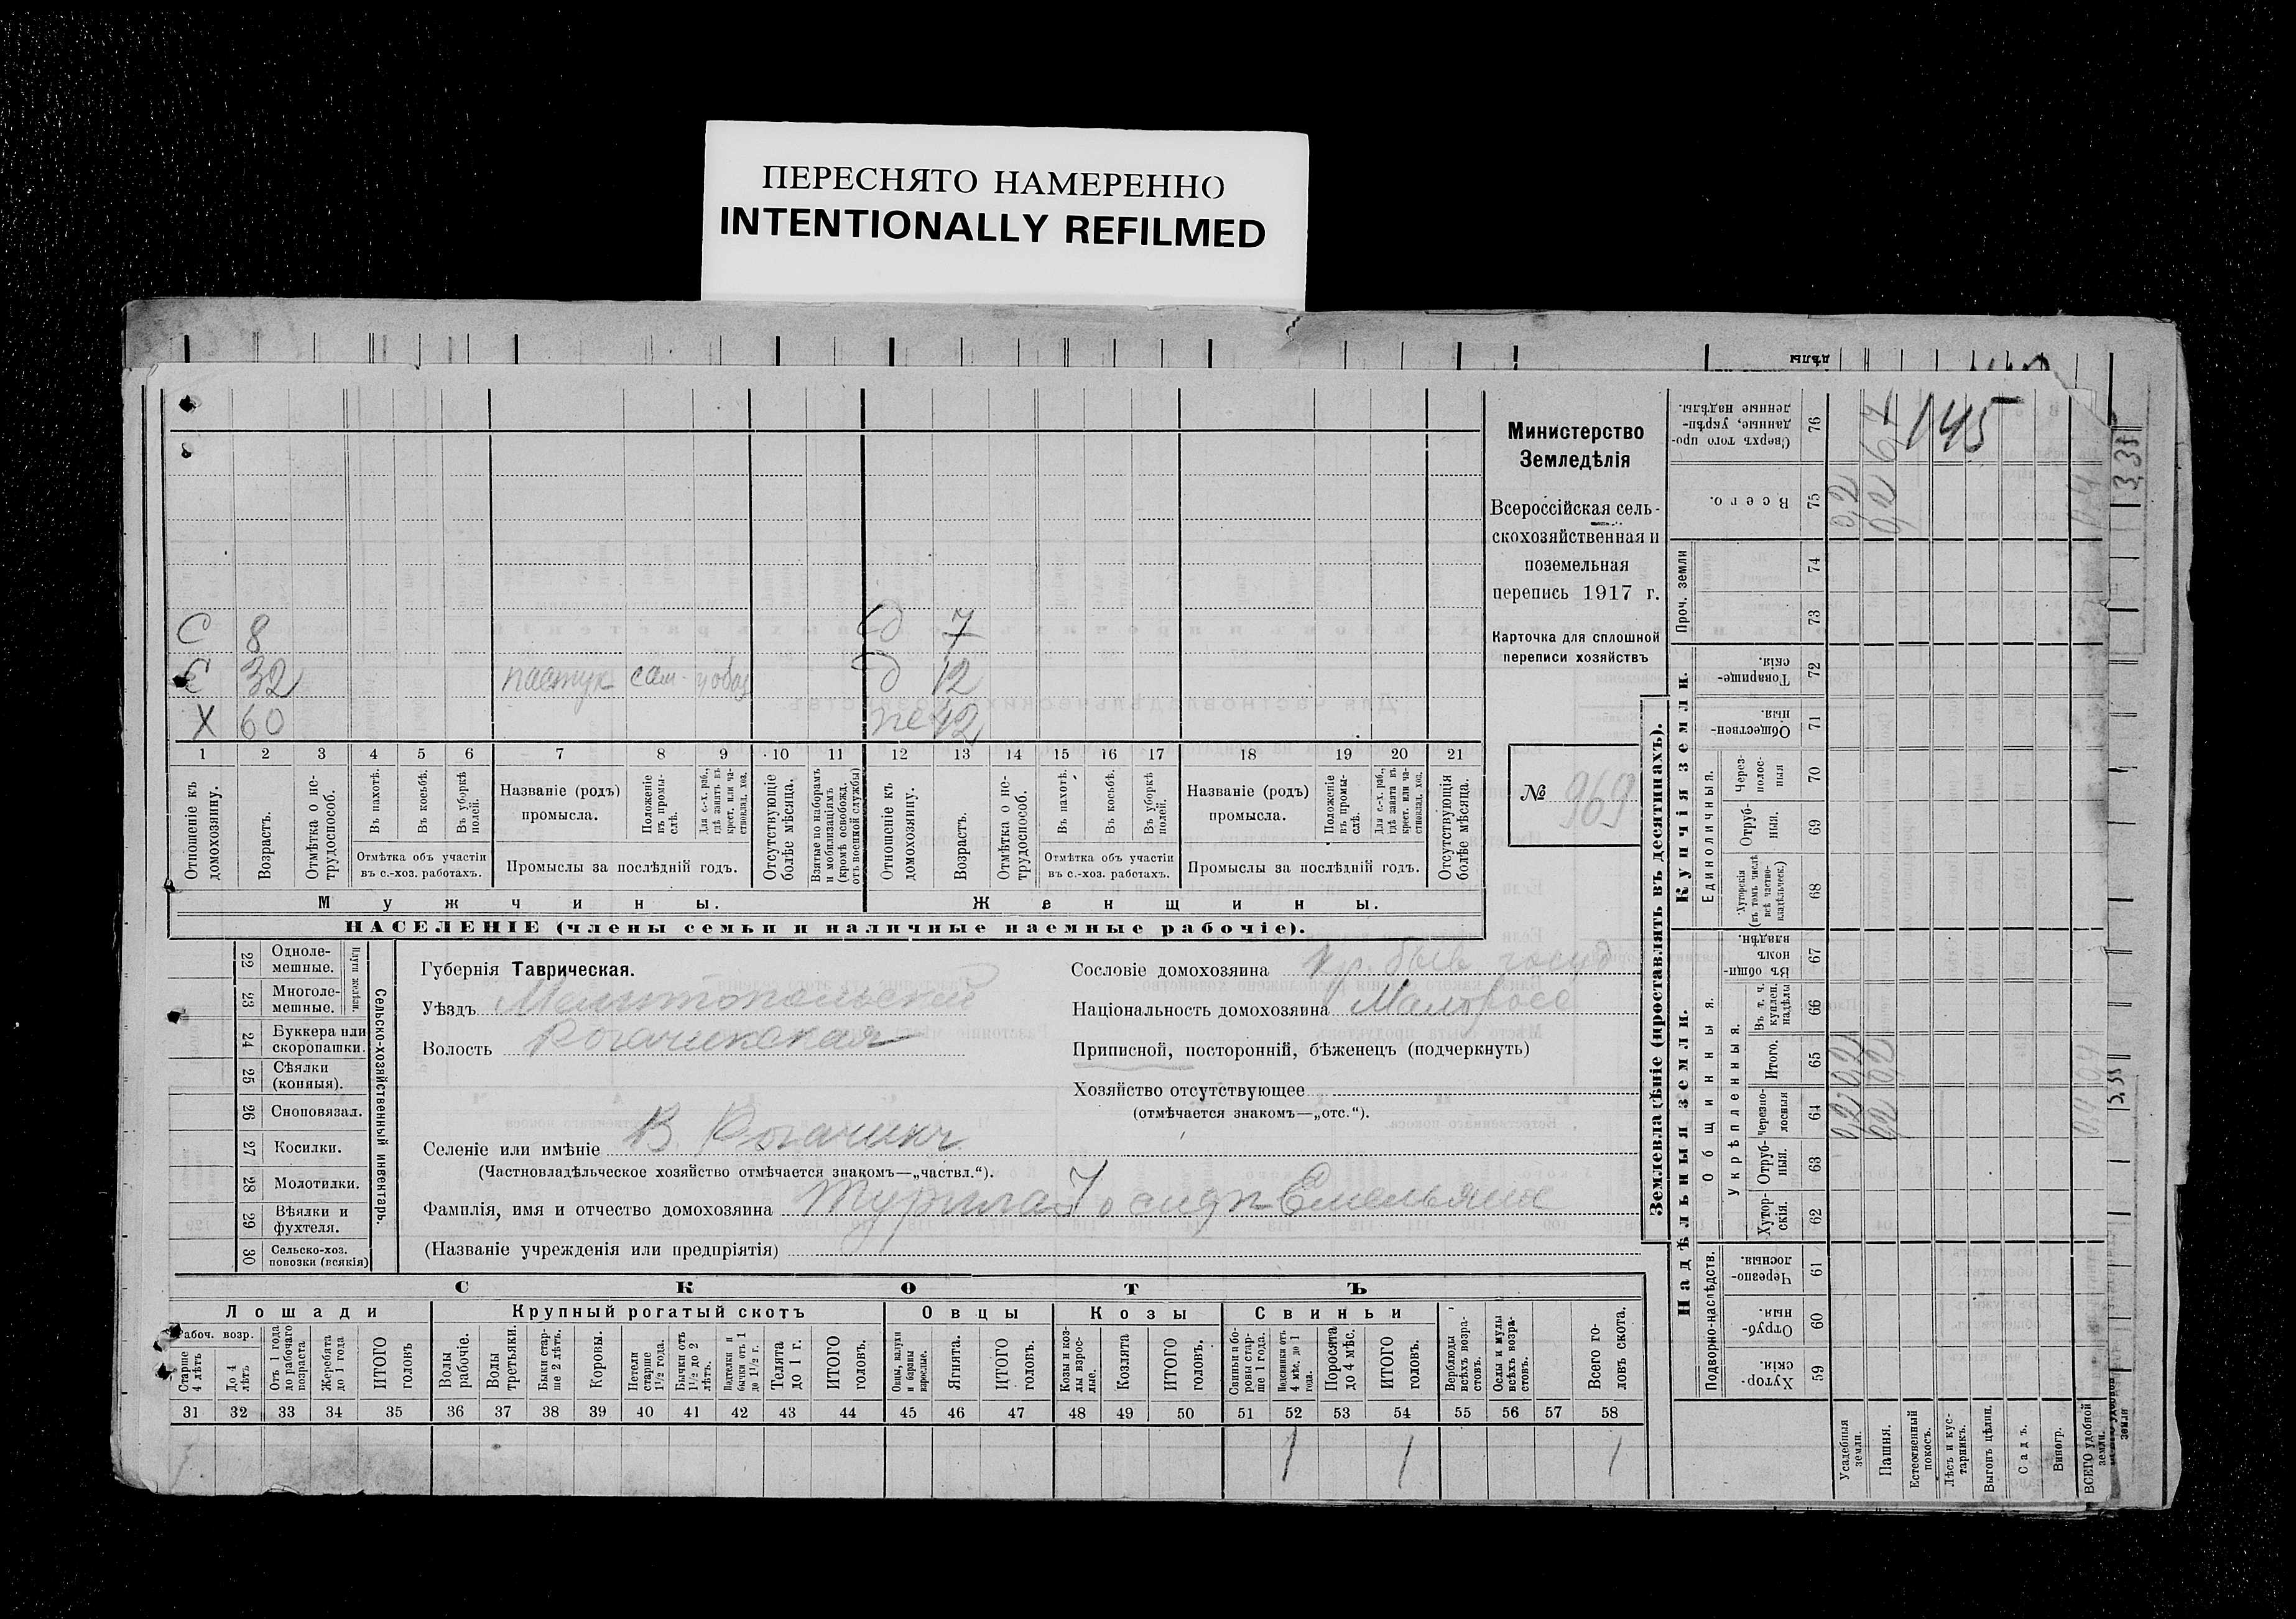 ПЕРЕСНЯТО НАМЕРЕННО
INTENTIONALLY REFILMED
145
Министерство
Земледѣлія
Всероссійская сель-
скохозяйственная и
поземельная
перепись 1917 г.
Карточка для сплошной
переписи хозяйствъ
№ 969
С 8
С 32 пастух сам
Х 60
д 7
д 12
же 42
1 2 3 4 5 6 7 8 9 10 11 12 13 14 15 16 17 18 19 20 21
Отношеніе къ домохозяину.
Возрастъ.
Отмѣтка о не-трудоспособ.
Въ пахотѣ.
Въ косьбѣ.
Въ уборкѣ полей.
Отмѣтка объ участіи
въ с.-хоз. работахъ.
Названіе (родъ)
промысла.
Положеніе въ промы-слѣ.
Для с.-х. раб., гдѣ занятъ въ крест. или ча-стновлад. хоз.
Промыслы за послѣдній годъ.
Отсутствующіе болѣе мѣсяца.
Взятые по наборамъ и мобилизаціямъ (кромѣ освобожд. отъ военной службы)
Отношеніе къ домохозяину.
Возрастъ.
Отмѣтка о не-трудоспособ.
Въ пахотѣ.
Въ косьбѣ.
Въ уборкѣ полей.
Отмѣтка объ участіи
въ с.-хоз. работахъ.
Названіе (родъ)
промысла.
Положеніе въ промы-слѣ.
Для с.-х. раб., гдѣ занята въ крест. или ча-стновлад. хоз.
Промыслы за послѣдній годъ.
Отсутствующія болѣе мѣсяца.
Мужчины. Женщины.
НАСЕЛЕНІЕ (члены семьи и наличные наемные рабочіе).
Сельско-хозяйственный инвентарь.
22 Одноле-мешные.
23 Многоле-мешные.
24 Буккера или скоропашки.
25 Сѣялки (конныя).
26 Сноповязал.
27 Косилки.
28 Молотилки.
29 Вѣялки и фухтеля.
30 Сельско-хоз. повозки (всякія)
Губернія Таврическая.
Уѣздъ Мелитопольскій
Волость Рогачикская
Селеніе или имѣніе В. Рогачикъ
(Частновладѣльческое хозяйство отмѣчается знакомъ—„частвл.“).
Фамилія, имя и отчество домохозяина
(Названіе учрежденія или предпріятія)
Сословіе домохозяина кр. быв госуд
Національность домохозяина Малоросс
Приписной, посторонній, бѣженецъ (подчеркнуть)
Хозяйство отсутствующее
(отмѣчается знакомъ—„отс.“).
СКОТЪ
Лошади Крупный рогатый скотъ Овцы Козы Свиньи
Рабоч. возр.
Старше 4 лѣтъ
До 4 лѣтъ
Отъ 1 года до рабочаго возраста
Жеребята до 1 года
ИТОГО головъ
Волы рабочіе.
Волы третьяки.
Быки стар-ше 2 лѣтъ.
Коровы.
Нетели старше 1½ года.
Бычки отъ 1½ до 2 лѣтъ.
Подтелки и бычки отъ 1 до 1½ г.
Телята до 1 г.
ИТОГО головъ.
Овцы, валухи и бараны взрослые.
Ягнята.
ИТОГО головъ.
Козы и коз-лы взрос-лые.
Козлята
ИТОГО головъ.
Свиньи и бо-ровы стар-ше 1 года.
Подсвинки отъ 4 мѣс. до 1 года.
Поросята до 4 мѣс.
ИТОГО головъ.
Верблюды всѣхъ возра-стовъ.
Ослы и мулы всѣхъ возра-стовъ.
Всего го-ловъ скота.
31 32 33 34 35 36 37 38 39 40 41 42 43 44 45 46 47 48 49 50 51 52 53 54 55 56 57 58
1 1 1
Землевладѣніе (проставлять въ десятинахъ).
Надѣльныя земли.
Купчія земли.
Проч. земли
Подворно-наслѣдств.
Общинныя.
Укрѣпленныя.
Единоличныя.
Сверхъ того про-данные, укрѣп-ленные надѣлы. 76
Всего. 75
74
73
Товарище-скія. 72
Обществен-ныя 71
Через-полос-ныя 70
Отруб-ныя. 69
Хуторскія (въ томъ числѣ всѣ частно-владѣльческ.) 68
Въ общин-номъ владѣн. 67
Въ т. ч. куплен. надѣлы 66
Итого. 65
Черезпо-лосныя 64
Отруб-ныя. 63
Хутор-скія. 62
Черезпо-лосныя. 61
Отруб-ныя. 60
Хутор-скія. 59
Усадебныя земли.
Пашня.
Естественный покосъ.
Лѣсъ и кус-тарникъ.
Выгонъ цѣлин.
Садъ.
Виногр.
ВСЕГО удобной земли.